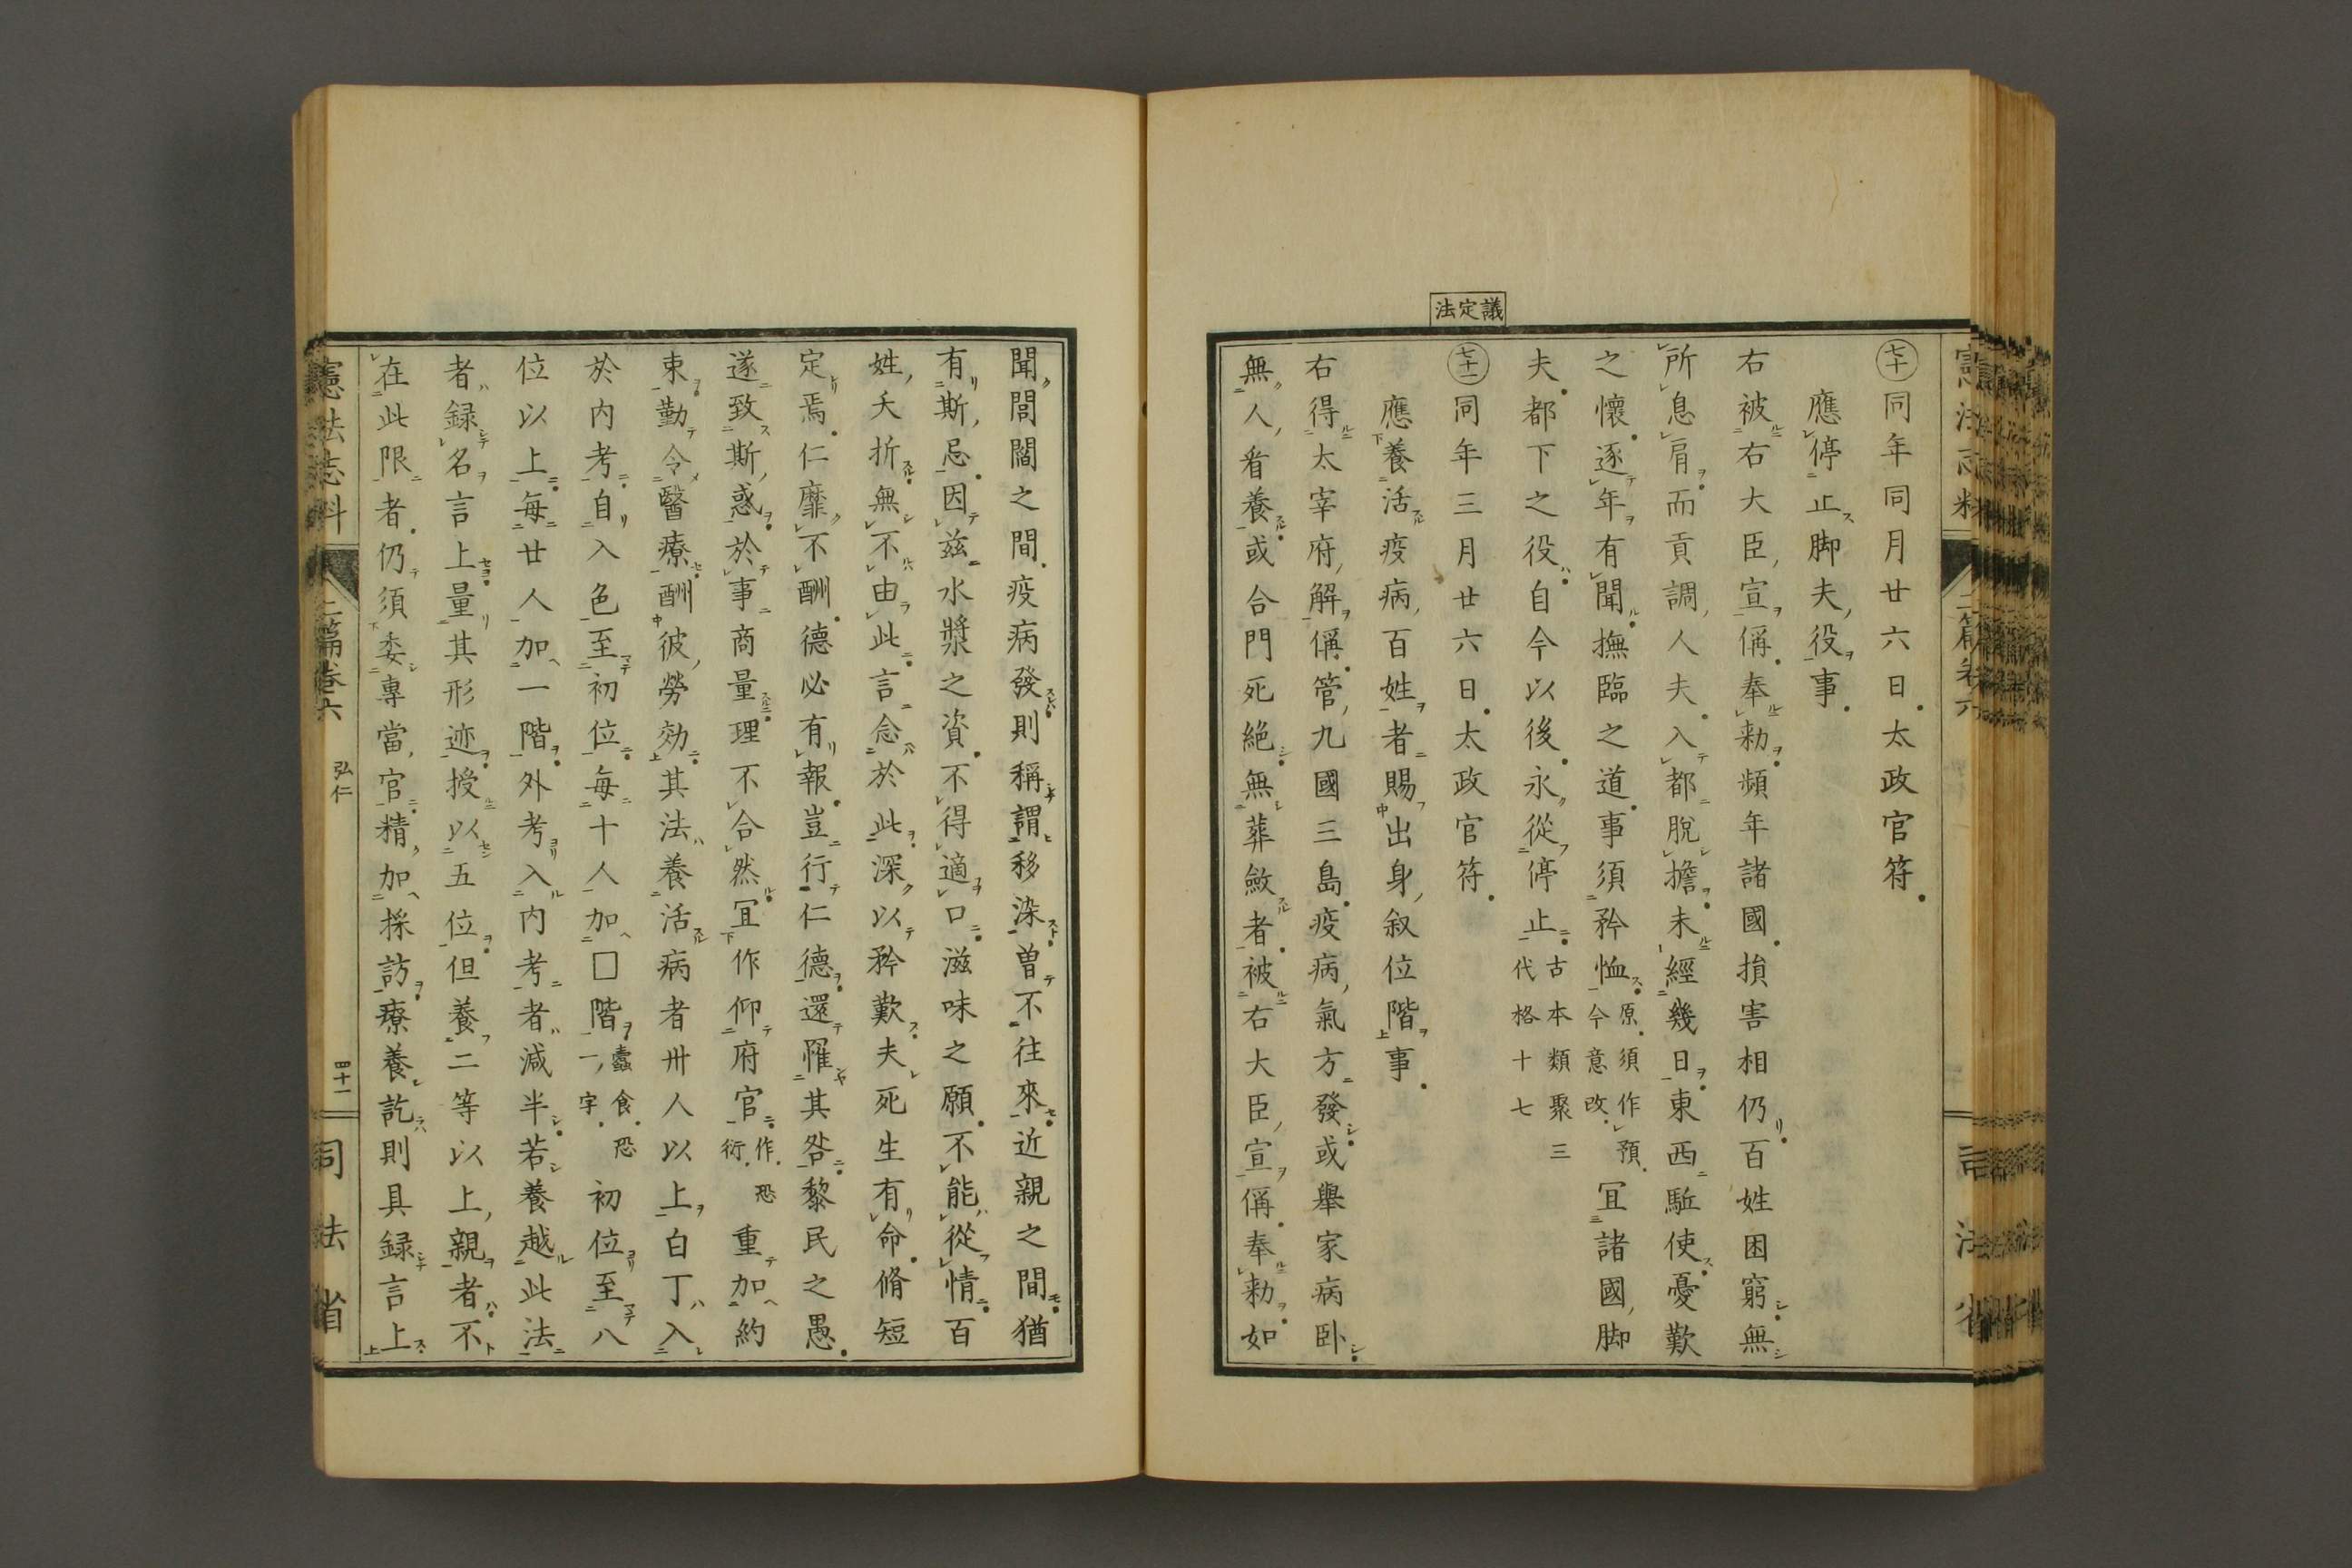 議定法
七十 同年同月廿六日太政官符
應停止脚夫役事
右被右大臣宣偁奉勅頻年諸國損害相仍百姓困窮無
所息肩而貢調人夫入都脫擔未經幾日東西駈使憂歎
之懷逐年有聞撫臨之道事須矜恤原須作預今意改宜諸國脚
夫都下之役自今以後永從停止古本類聚三代格十七
七十一 同年三月廿六日太政官符
應養活疫病百姓者賜出身叙位階事
右得太宰府解偁管九國三島疫病氣方發或舉家病卧
無人看養或合門死絶無葬斂者被右大臣宣偁奉勅如
聞閭閻之間疫病發則稱謂移染曽不往來近親之間猶
有斯忌因茲水漿之資不得適口滋味之願不能從情百
姓夭折無不由此言念於此深以矜歎夫死生有命脩短
定焉仁靡不酬德必有報豈行仁德還罹其咎黎民之愚
遂致斯惑於事商量理不合然冝作仰府官作恐衍重加約
束勤令醫療酬彼勞効其法養活病者卅人以上白丁入
於内考自入色至初位每十人加□階蠹食恐一字初位至八
位以上每廿人加一階外考入内考者減半若養越此法
者録名言上量其形迹授以五位但養二等以上親者不
在此限者仍須委專當官精加採訪療養訖則具録言上
憲法志料 二篇卷六 弘仁 四十一 司法省